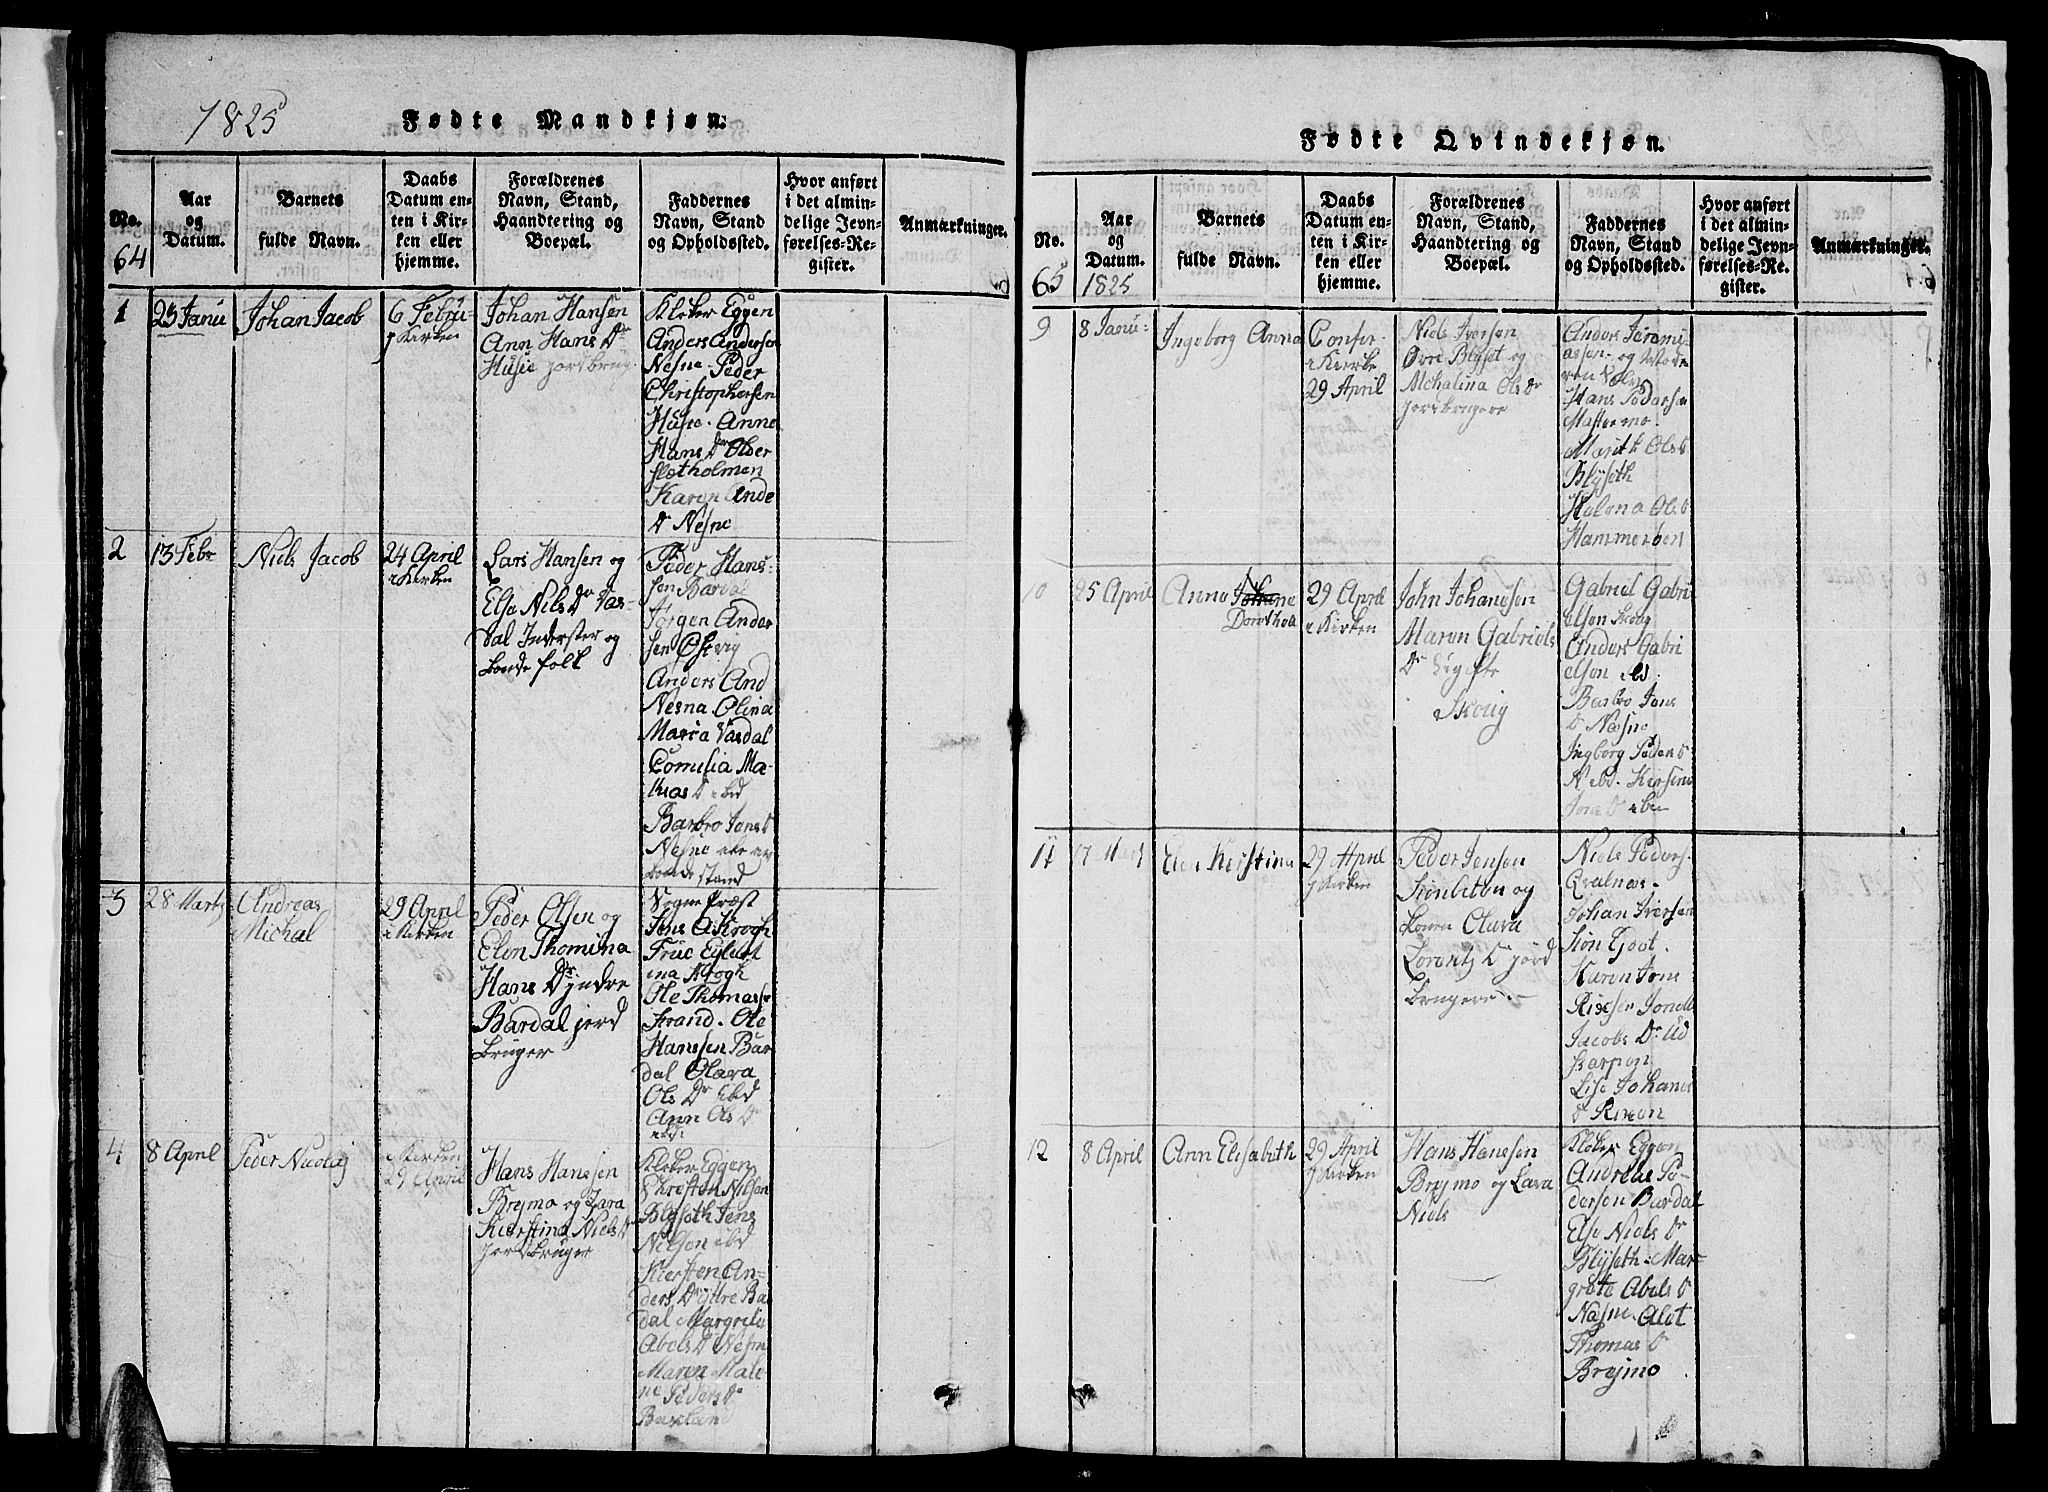 1825
Fødte Mandkjøn.
No.
64
Aar
og
Datum.
Barnets
fulde Navn.
Daabs
Datum en-
ten i Kir-
ken eller
hjemme.
Forældrenes
Navn, Stand,
Haandtering og
Boepæl.
Faddernes
Navn, Stand
og Opholdssted.
Hvor anført
i det almin-
delige Jevn-
førelses-Re-
gister.
Anmærkninger.
1
23 Janu
Johan Jacob
6 Febru-
i Kirken
Johan Hansen
Ann Hans Dr
Husie jordbrug
Kloker Eggen
Anders Andersen
Nesne Peder
Christophersen
Husie. Anne
Hans Dr Older
sletholmen
Karen Ande
Dr Nesne
2
13 Febr
Niels Jacob
24 April
i Kirken
Lars Hansen og
Else Niels Dr Var-
dal Inderster og
bonde folk
Peder Hans-
sen Bardal
Jørgen Ander
sen Østvig
Anders And
Nesna. Olina
Maria Vardal
Comilia Ma-
thias Dr ibid
Barbro Jens D
Nesne
bonde stand
3
28 Marty
Andreas
Michal
29 April
i Kirken
Peder Olsen og
Elen Thomina
Hans Dr jndre
Bardal jord
bruger
Sogne Præst
Jens A Krogh
Frue Eylert
ina Krogh
Ole Thomasse
strand. Ole
Hanssen Bar
dal Olava
Ols Dr ibid
Ann Ols Dr
ibd
4
8 April
Peder Nicolaj
i Kirken
29 April
Hans Hansen
Brejmo og Zara
Kierstina Niels Dr
jordbruger
Kloker Eggen
Christen Nilsen
Blyseth Jens
Nilsen ibd
Kiersten An-
ders Dr ittre Ba
dal Margrete
Abels D Nesne
Maren Male
ne Peders Dr
Baseland
Fødte Qvindekjøn.
No.
65
Aar
og
Datum.
1825
Barnets
fulde Navn.
Daabs
Datum en-
ten i Kir-
ken eller
hjemme.
Forældrenes
Navn, Stand,
Haandtering og
Boepæl.
Faddernes
Navn, Stand
og Opholdssted.
Hvor anført
i det almin-
delige Jevn-
førelses-Re-
gister.
Anmærkninger.
9
8 Janu-
Ingeborg Anna
Confir-
i Kierke
29 April
Niels Iversen
Øvre Blyset og
Mchalina Ols Dr
jordbrugere
Anders Jeremi-
assen og Mode
ren
Hans Pedersen
Mastermo.
Marith Ols D
Blyseth
Helena Ols D
Hammerøen
10
25 April
Anna Johane
Dorothea
29 April
i Kirken
John Johanesen
Maren Gabriels
Dr Ugifte
Skoug
Gabriel Gabri
elsen Skog
Anders Gabri
elsen ibd.
Barbro Jens
D Næsne
Ingborg Peders D
ibd. Kersine
Jons D ibu
11
17 Mart
Elen Kerstina
29 April
i Kirken
Peder Jensen
og
konen Olava
Lorents D jord
brugere
Niels Peders
Qvalnæs.
Johan Iversen
Karen Jens
Jonette
Jacobs Dr Ud
harpen
Lise Johans
D Renøn
12
8 April
Ann Elisabeth
29 April
i Kirken
Hans Hanesen
Brejmo og Zara
Niels
Kloker Eggen
Andreas Pe-
dersen Bardal
Else Niels Dr
Blyseth. Mar-
grete Abels D
Næsne. Alet
Thomas D
Brejmo